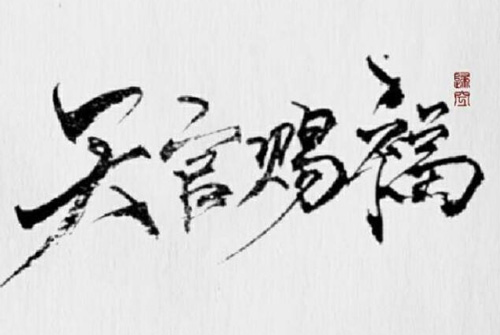 天官赐福